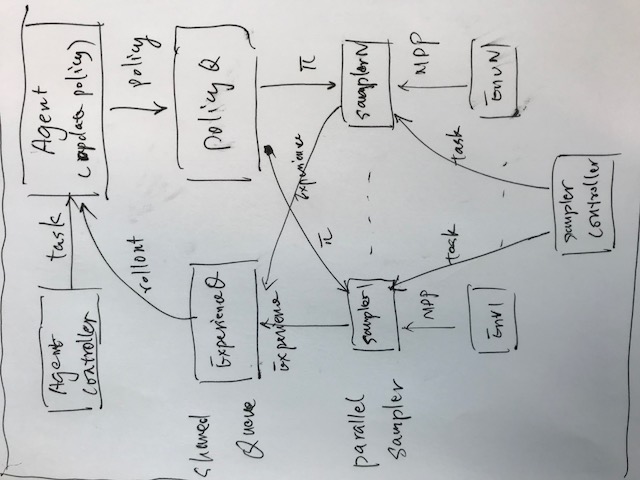 Agent
Controller
task
Agent
(update policy)
rollout
policy
Shared
Queue
Experience Q
policy Q
Experience
Experience
π
π
parallel
sampler
sampler1
sampler N
MPP
task
task
MPP
Env1
Env N
sampler
Controller